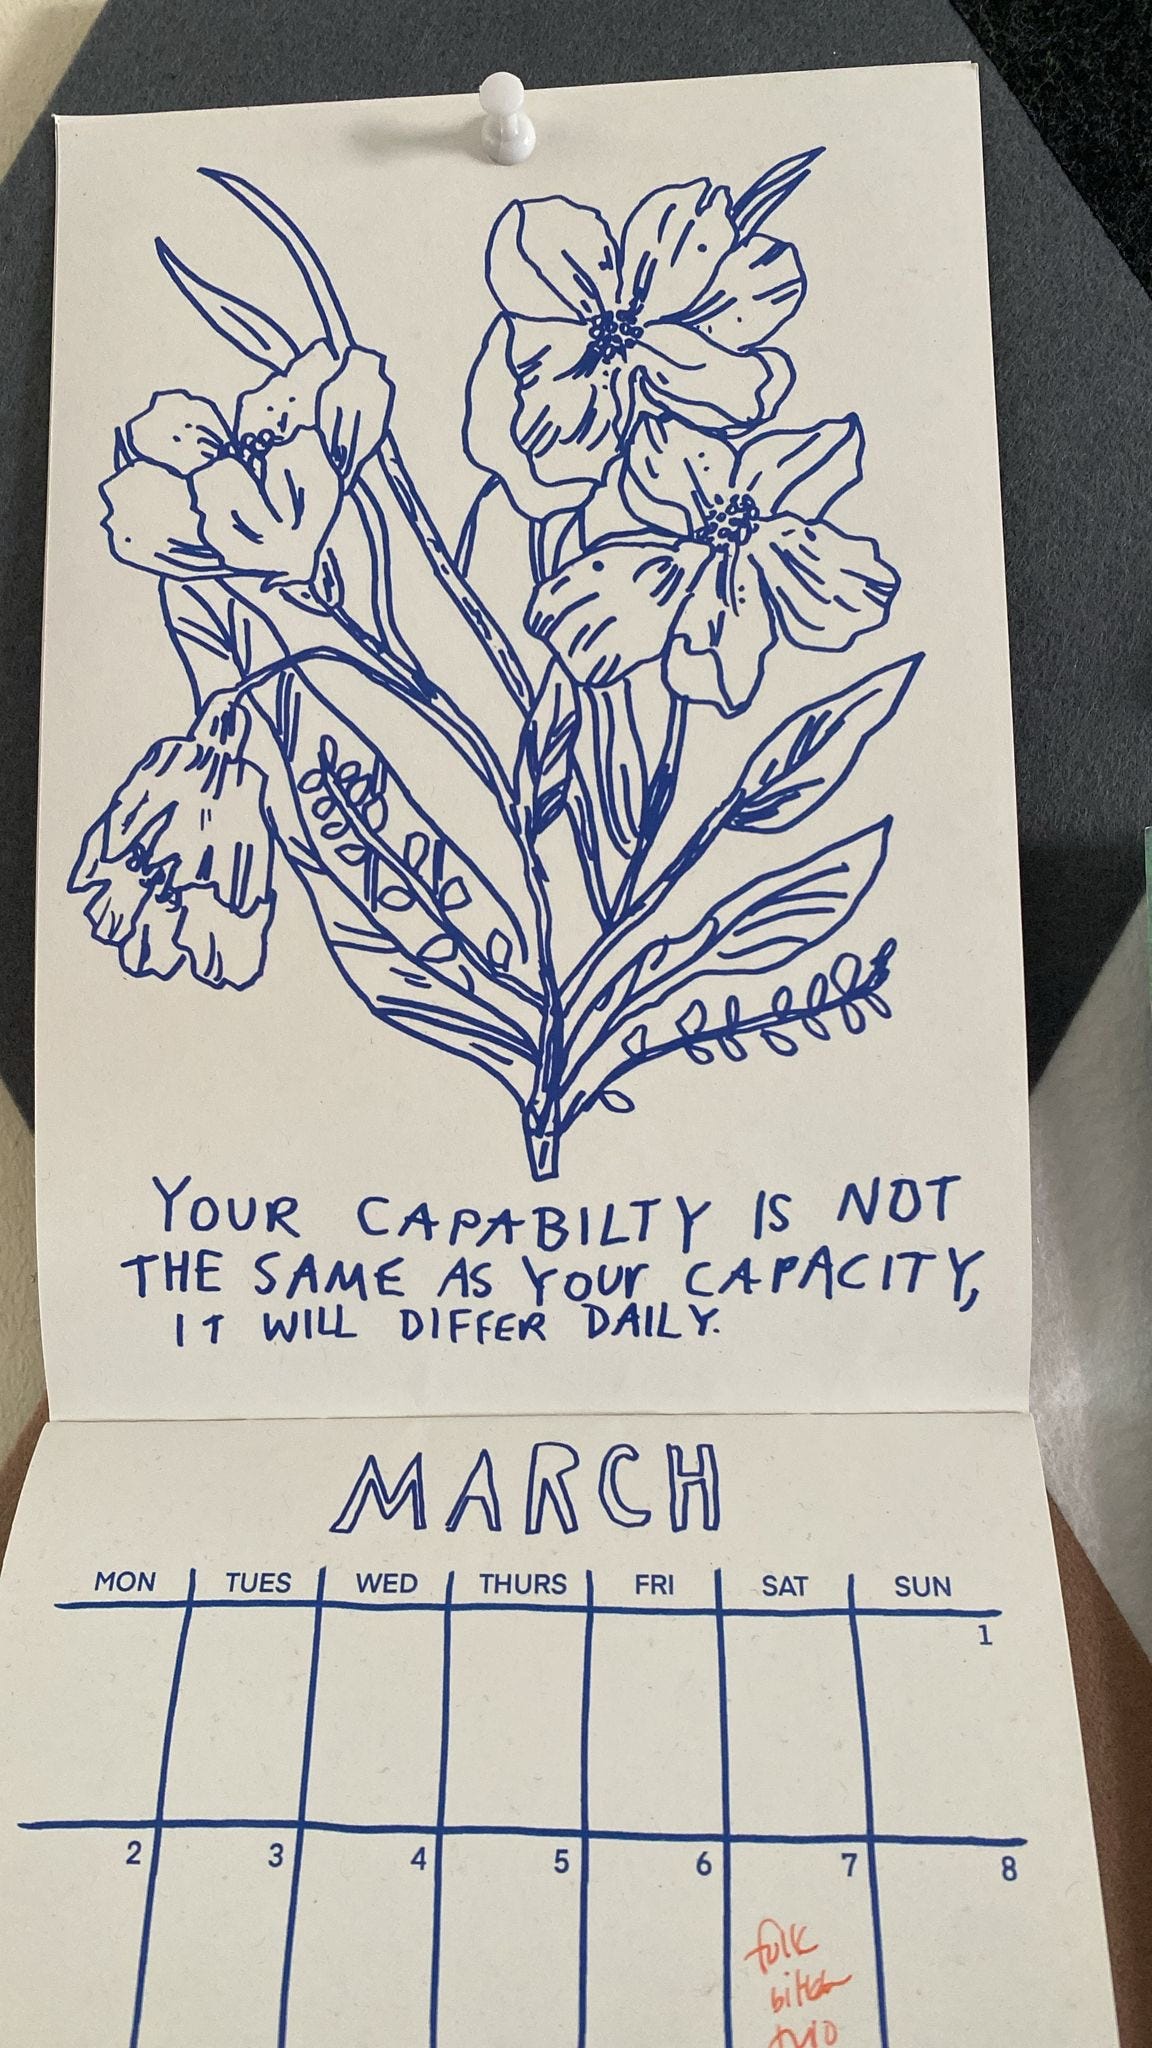 YOUR CAPABILTY IS NOT
THE SAME AS YOUR CAPACITY,
IT WILL DIFFER DAILY.
MARCH
MON TUES WED THURS FRI SAT SUN
1
2 3 4 5 6 7 8
folk